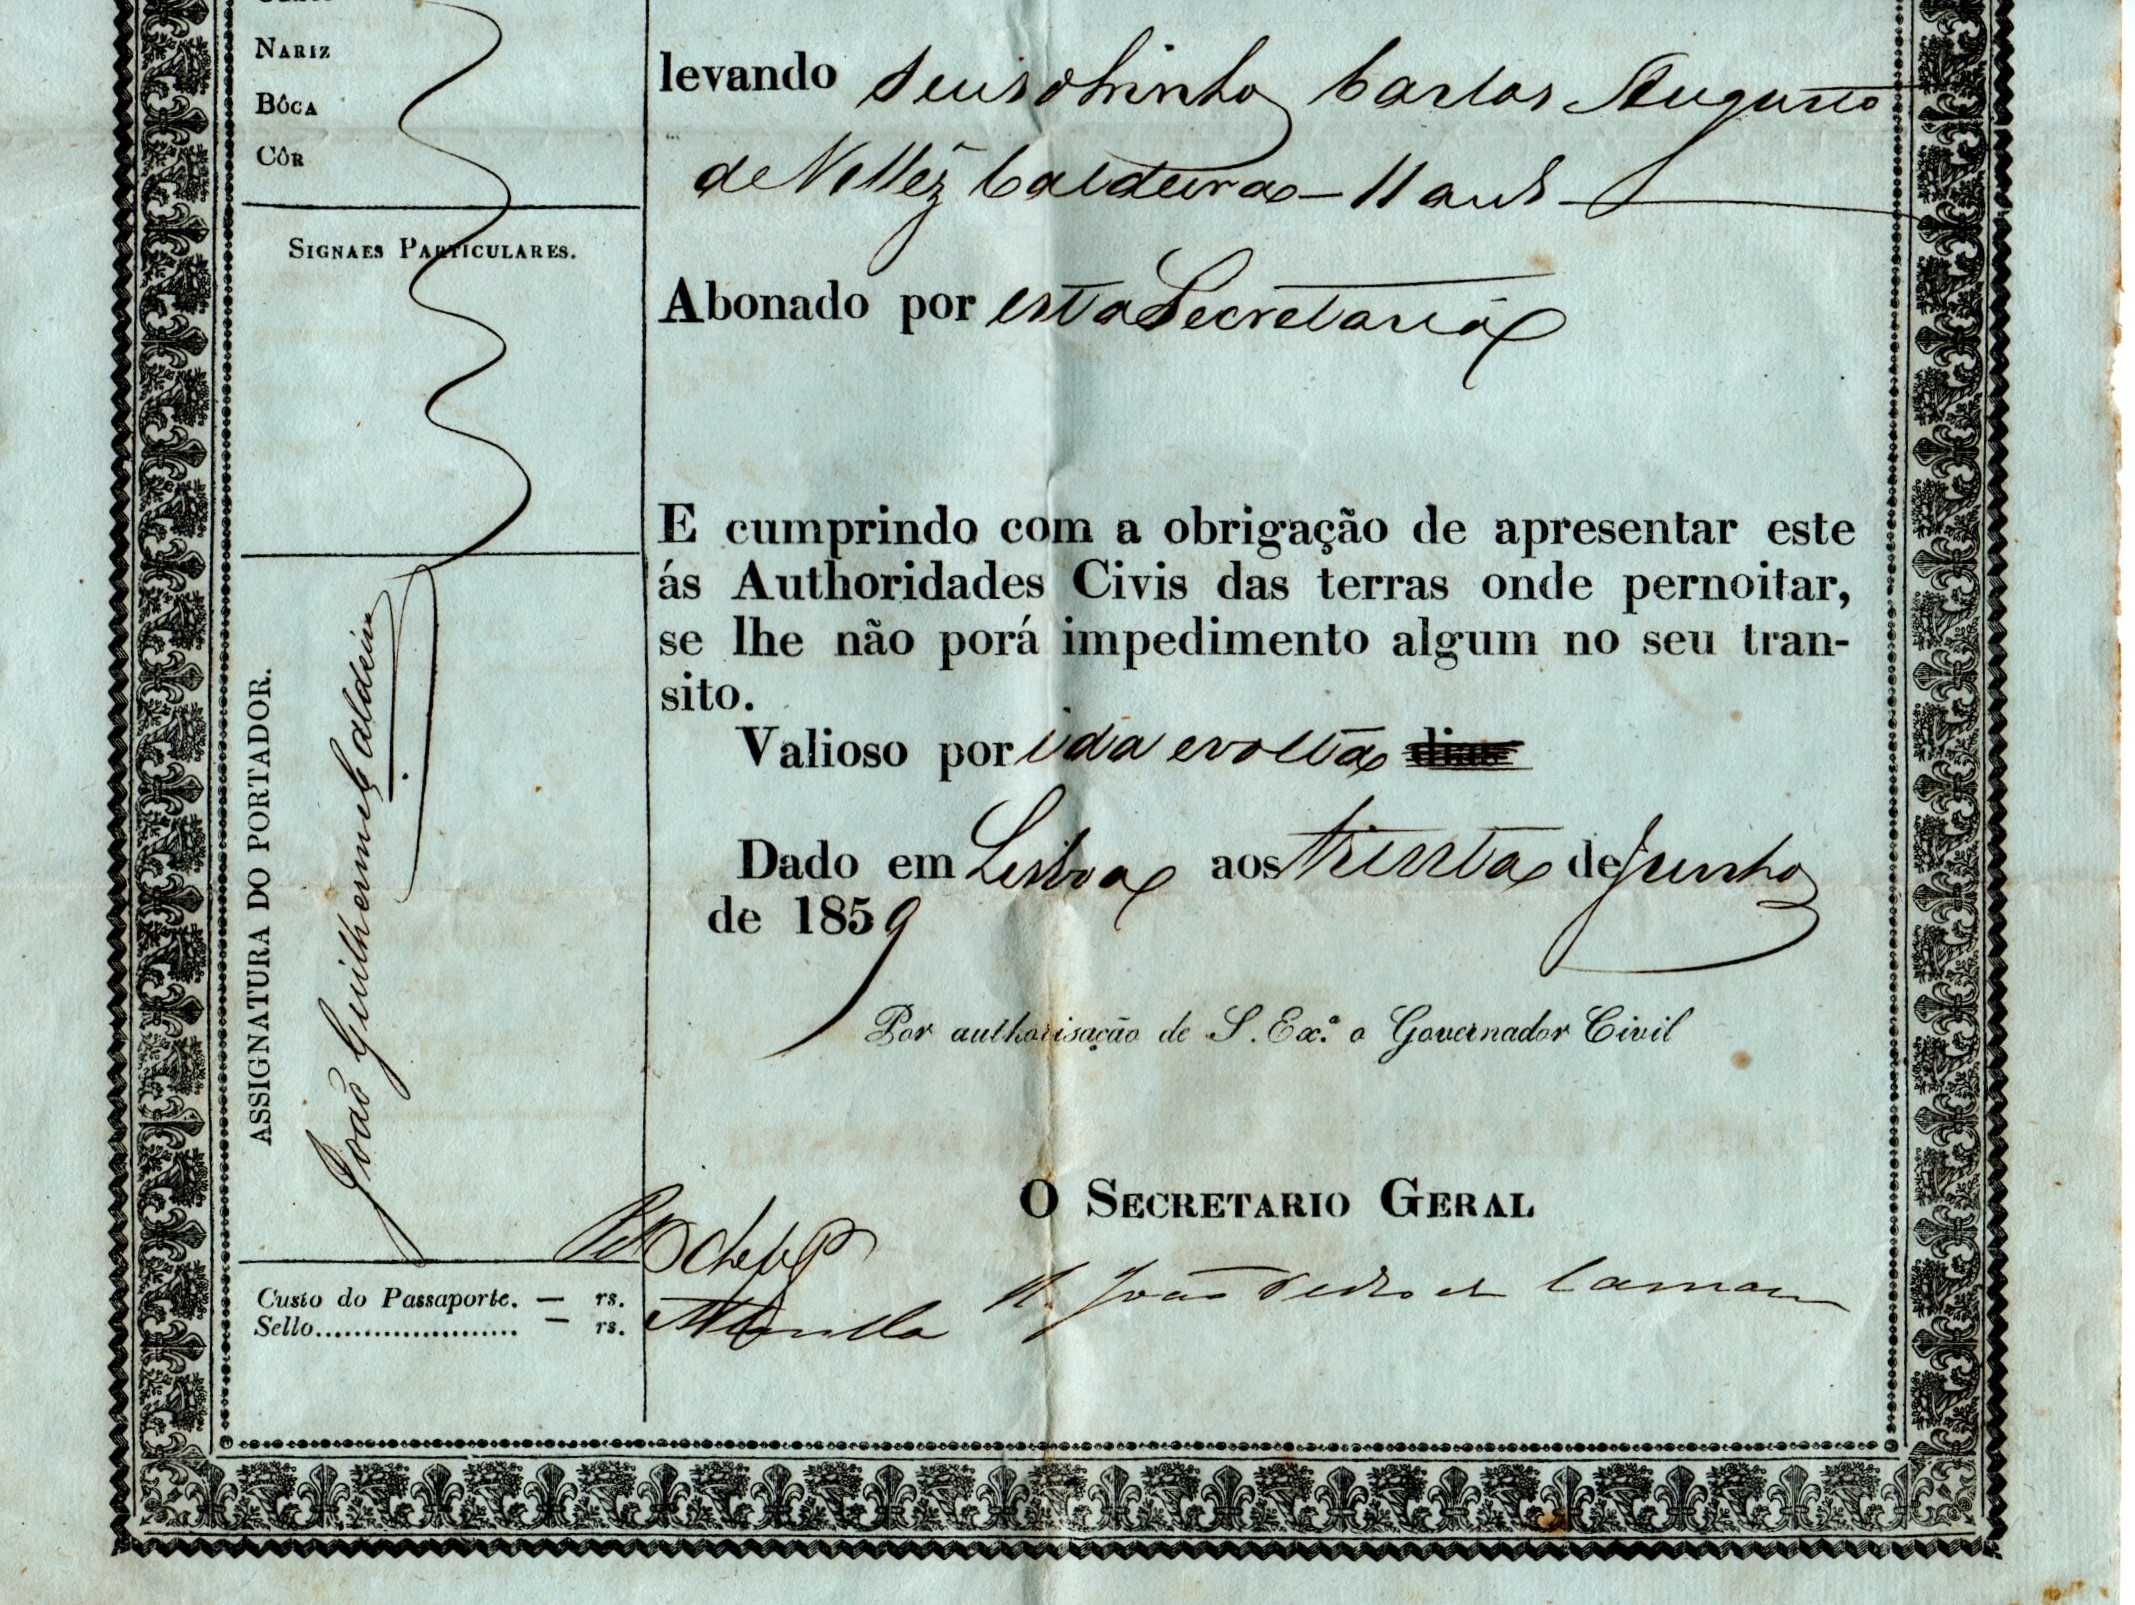 NARIZ
BÔCA
CÔR
SIGNAES PARTICULARES.
ASSIGNATURA DO PORTADOR.
João Guilherme Caldeira
Custo do Passaporte. — rs.
Sello...................... — rs.
levando seu sobrinho Carlos Augusto
de Caldeira — 11 an.s
Abonado por esta Secretaria
E cumprindo com a obrigação de apresentar este
ás Authoridades Civis das terras onde pernoitar,
se lhe não porá impedimento algum no seu tran-
sito.
Valioso por ida e volta dias
Dado em Lisboa aos trinta de Junho
de 1859
Por authorisação de S. Ex.ª o Governador Civil
O SECRETARIO GERAL
João Pedro da Camara